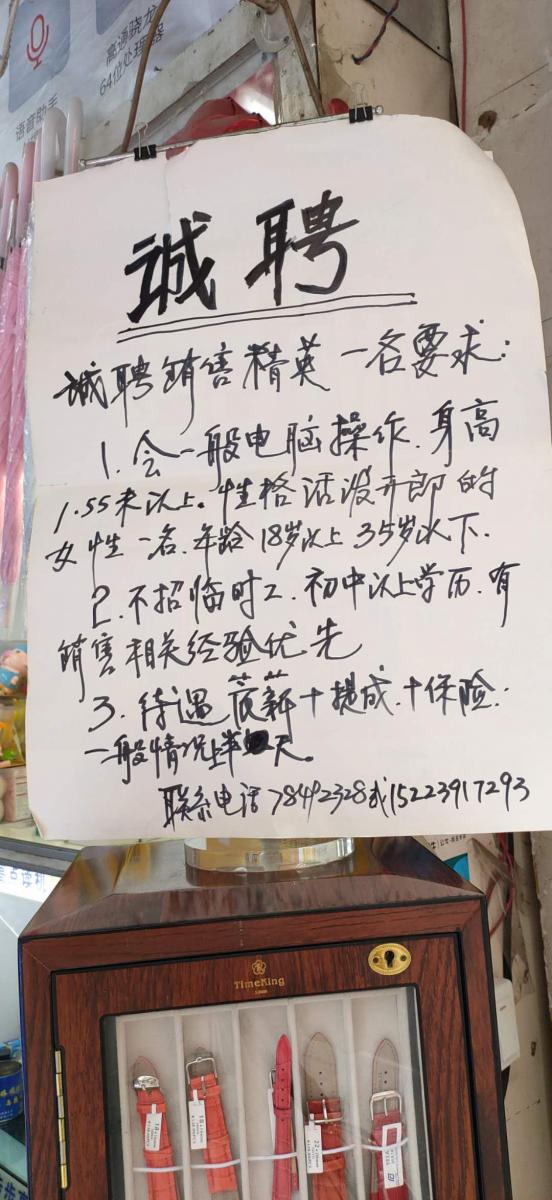 高通骁龙
64位处理器
语音助手
诚聘
诚聘销售精英一名要求:
1.会一般电脑操作.身高
1.55米以上。性格活泼开郎的
女性一名.年龄18岁以上35岁以下.
2.不招临时工.初中以上学历.有
销售相关经验优先
3.待遇底薪+提成.+保险.
一般情况上半天。
联系电话78492328或15223917293
TimeKing